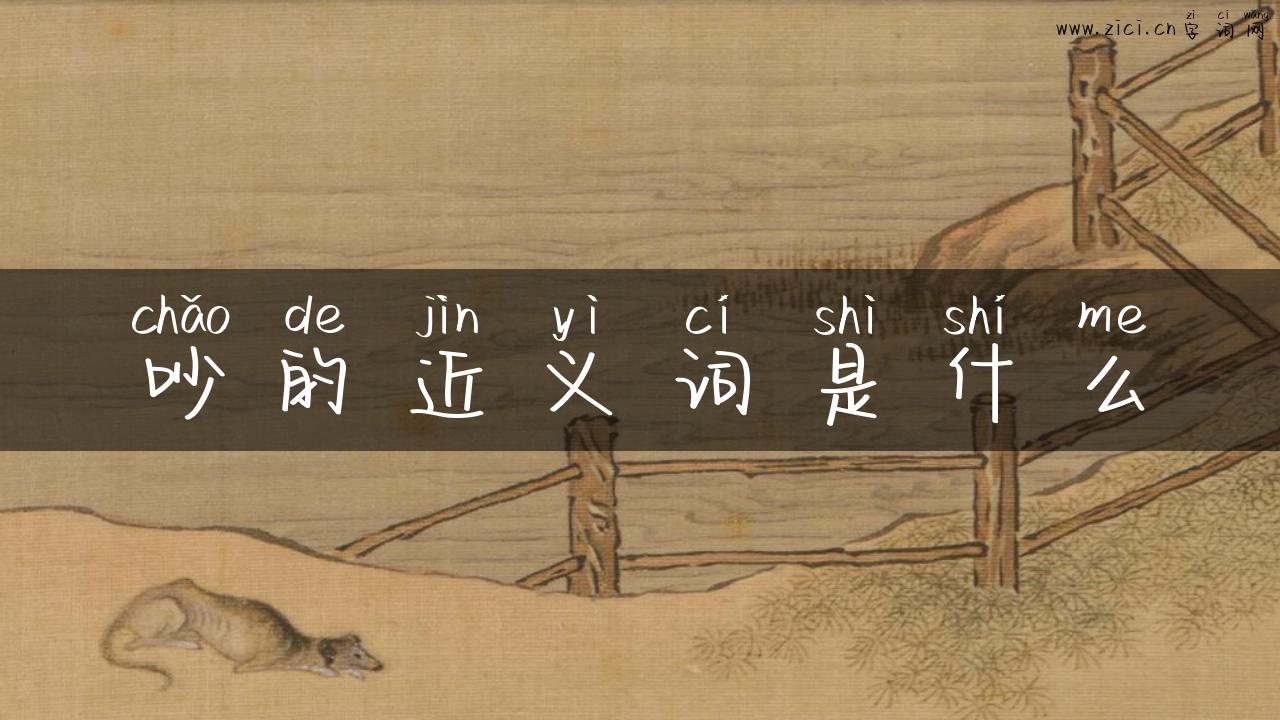 zi ci wang
www.zici.cn 字词网
chǎo de jìn yì cí shì shí me
吵的近义词是什么